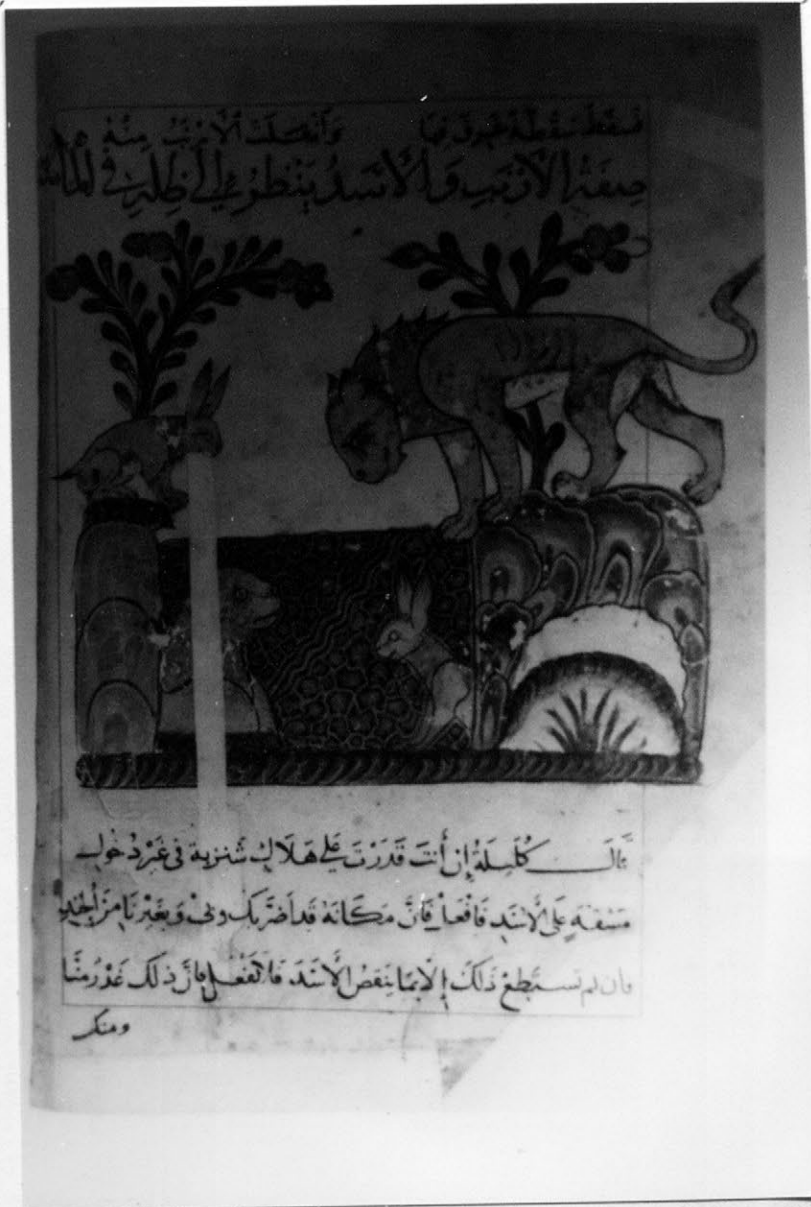 فسقط سقطة غرق فيها وانفلتت الأرنب منه
صفة الأرنب والأسد ينظر إلى ظله في الماء
قال كليلة إن أنت قدرت على هلاك شنزبة في غير دخول
مشقة على الأسد فافعل فإن مكانه قد أضر بك وبي وبغيرنا من الجند
وان لم تستطع ذلك إلا بما ينقص الأسد فلا تفعل فإن ذلك غدر منا
ومنك